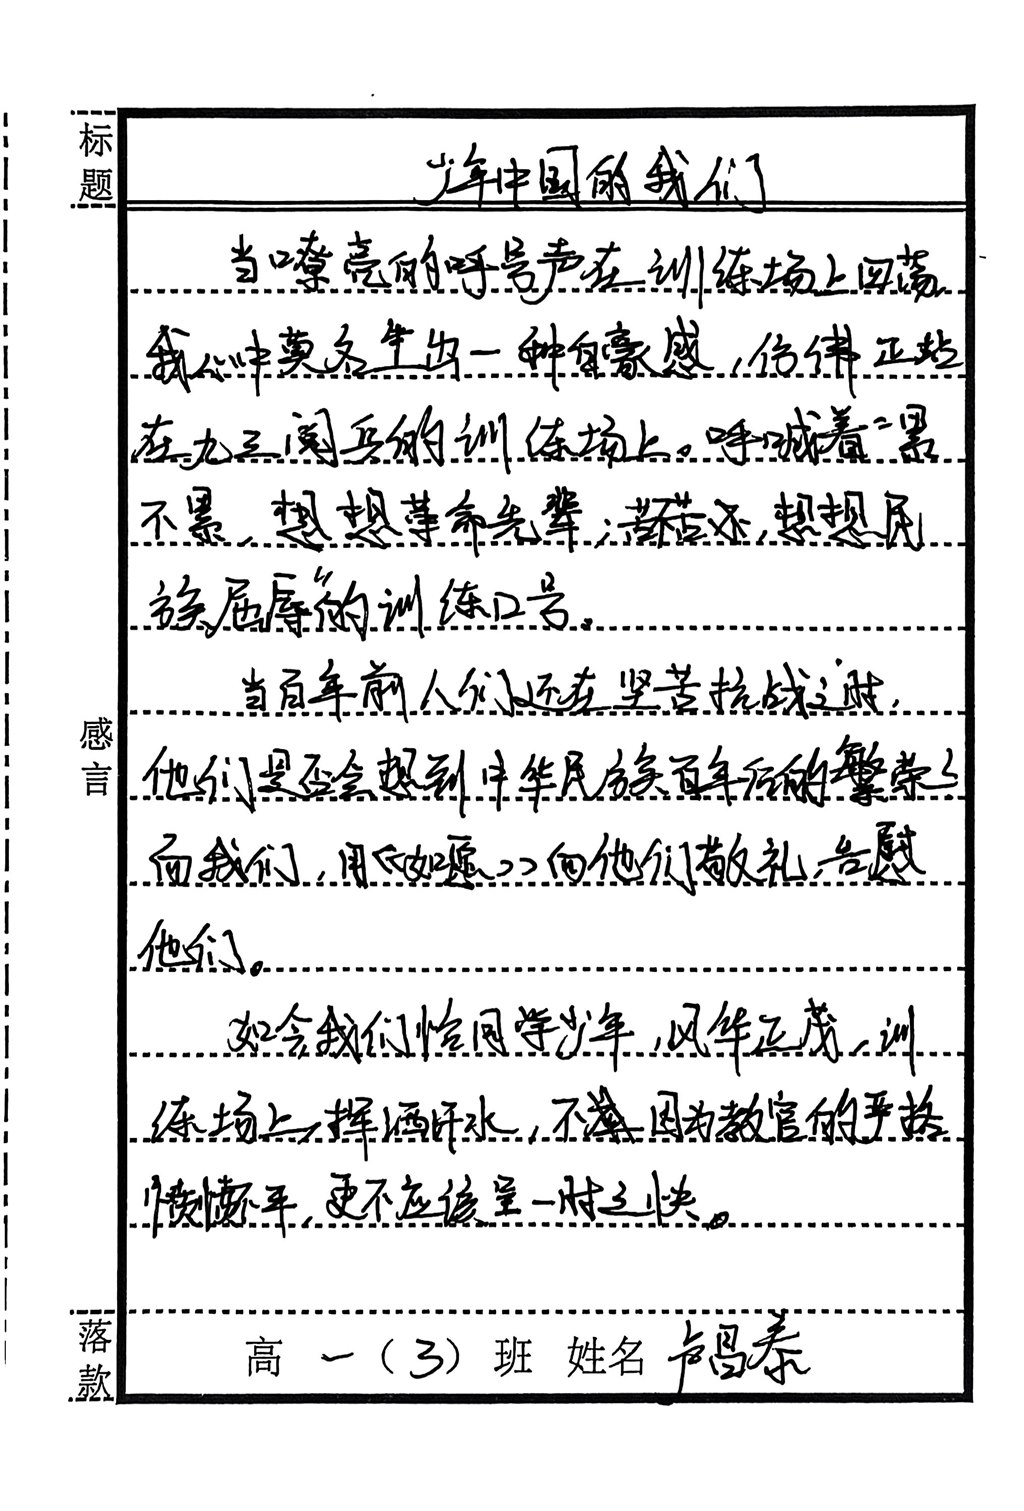 标题
少年中国的我们
当嘹亮的呼号声在训练场上回荡,
我心中莫名生出一种自豪感,仿佛正站
在九三阅兵的训练场上。呼喊着“累
不累,想想革命先辈;苦不苦,想想民
族屈辱”的训练口号。
当百年前人们还在坚苦抗战之时,
感言
他们是否会想到中华民族百年后的繁荣?
而我们,用《如愿》向他们敬礼,告慰
他们。
如今我们恰同学少年,风华正茂,训
练场上,挥洒汗水,不因为教官的严格
愤愤不平,更不应该呈一时之快。
落款
高一(3)班 姓名 卢昌泰